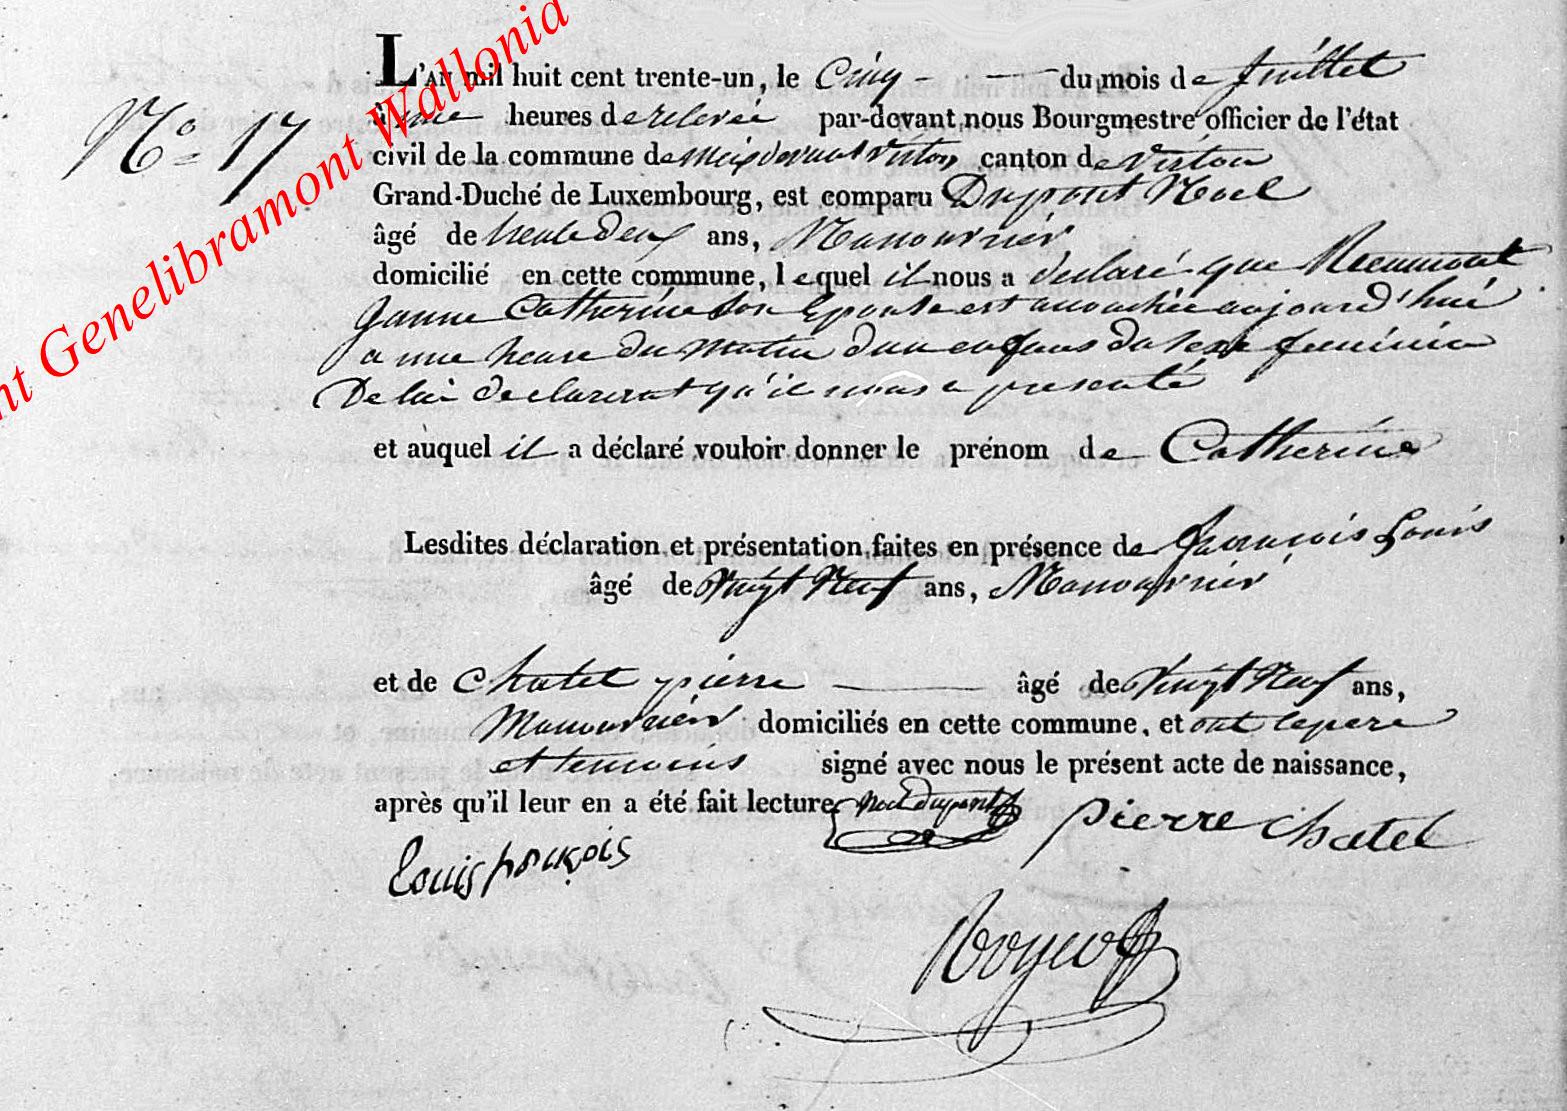 nt Genelibramont Wallonia
N.o 17
L'AN mil huit cent trente-un, le Cinq du mois de Juillet
à une heures de relevée par-devant nous Bourgmestre officier de l'état
civil de la commune de meix devant virton canton de virton
Grand-Duché de Luxembourg, est comparu Dupont Noel
âgé de trente deux ans, Manouvrier
domicilié en cette commune, lequel il nous a declaré que
Catherine son Epouse est accouchée aujourd'hui
a une heure du matin dun enfans du sexe feminin
De lui declarant qu'il nous a presenté
et auquel il a déclaré vouloir donner le prénom de Catherine
Lesdites déclaration et présentation faites en présence de francois Louis
âgé de vingt Neuf ans, Manouvrier
et de Chatel pierre âgé de vingt Neuf ans,
Manouvrier domiciliés en cette commune, et ont le pere
et temoins signé avec nous le présent acte de naissance,
après qu'il leur en a été fait lecture noel dupont pierre chatel
Louis francois